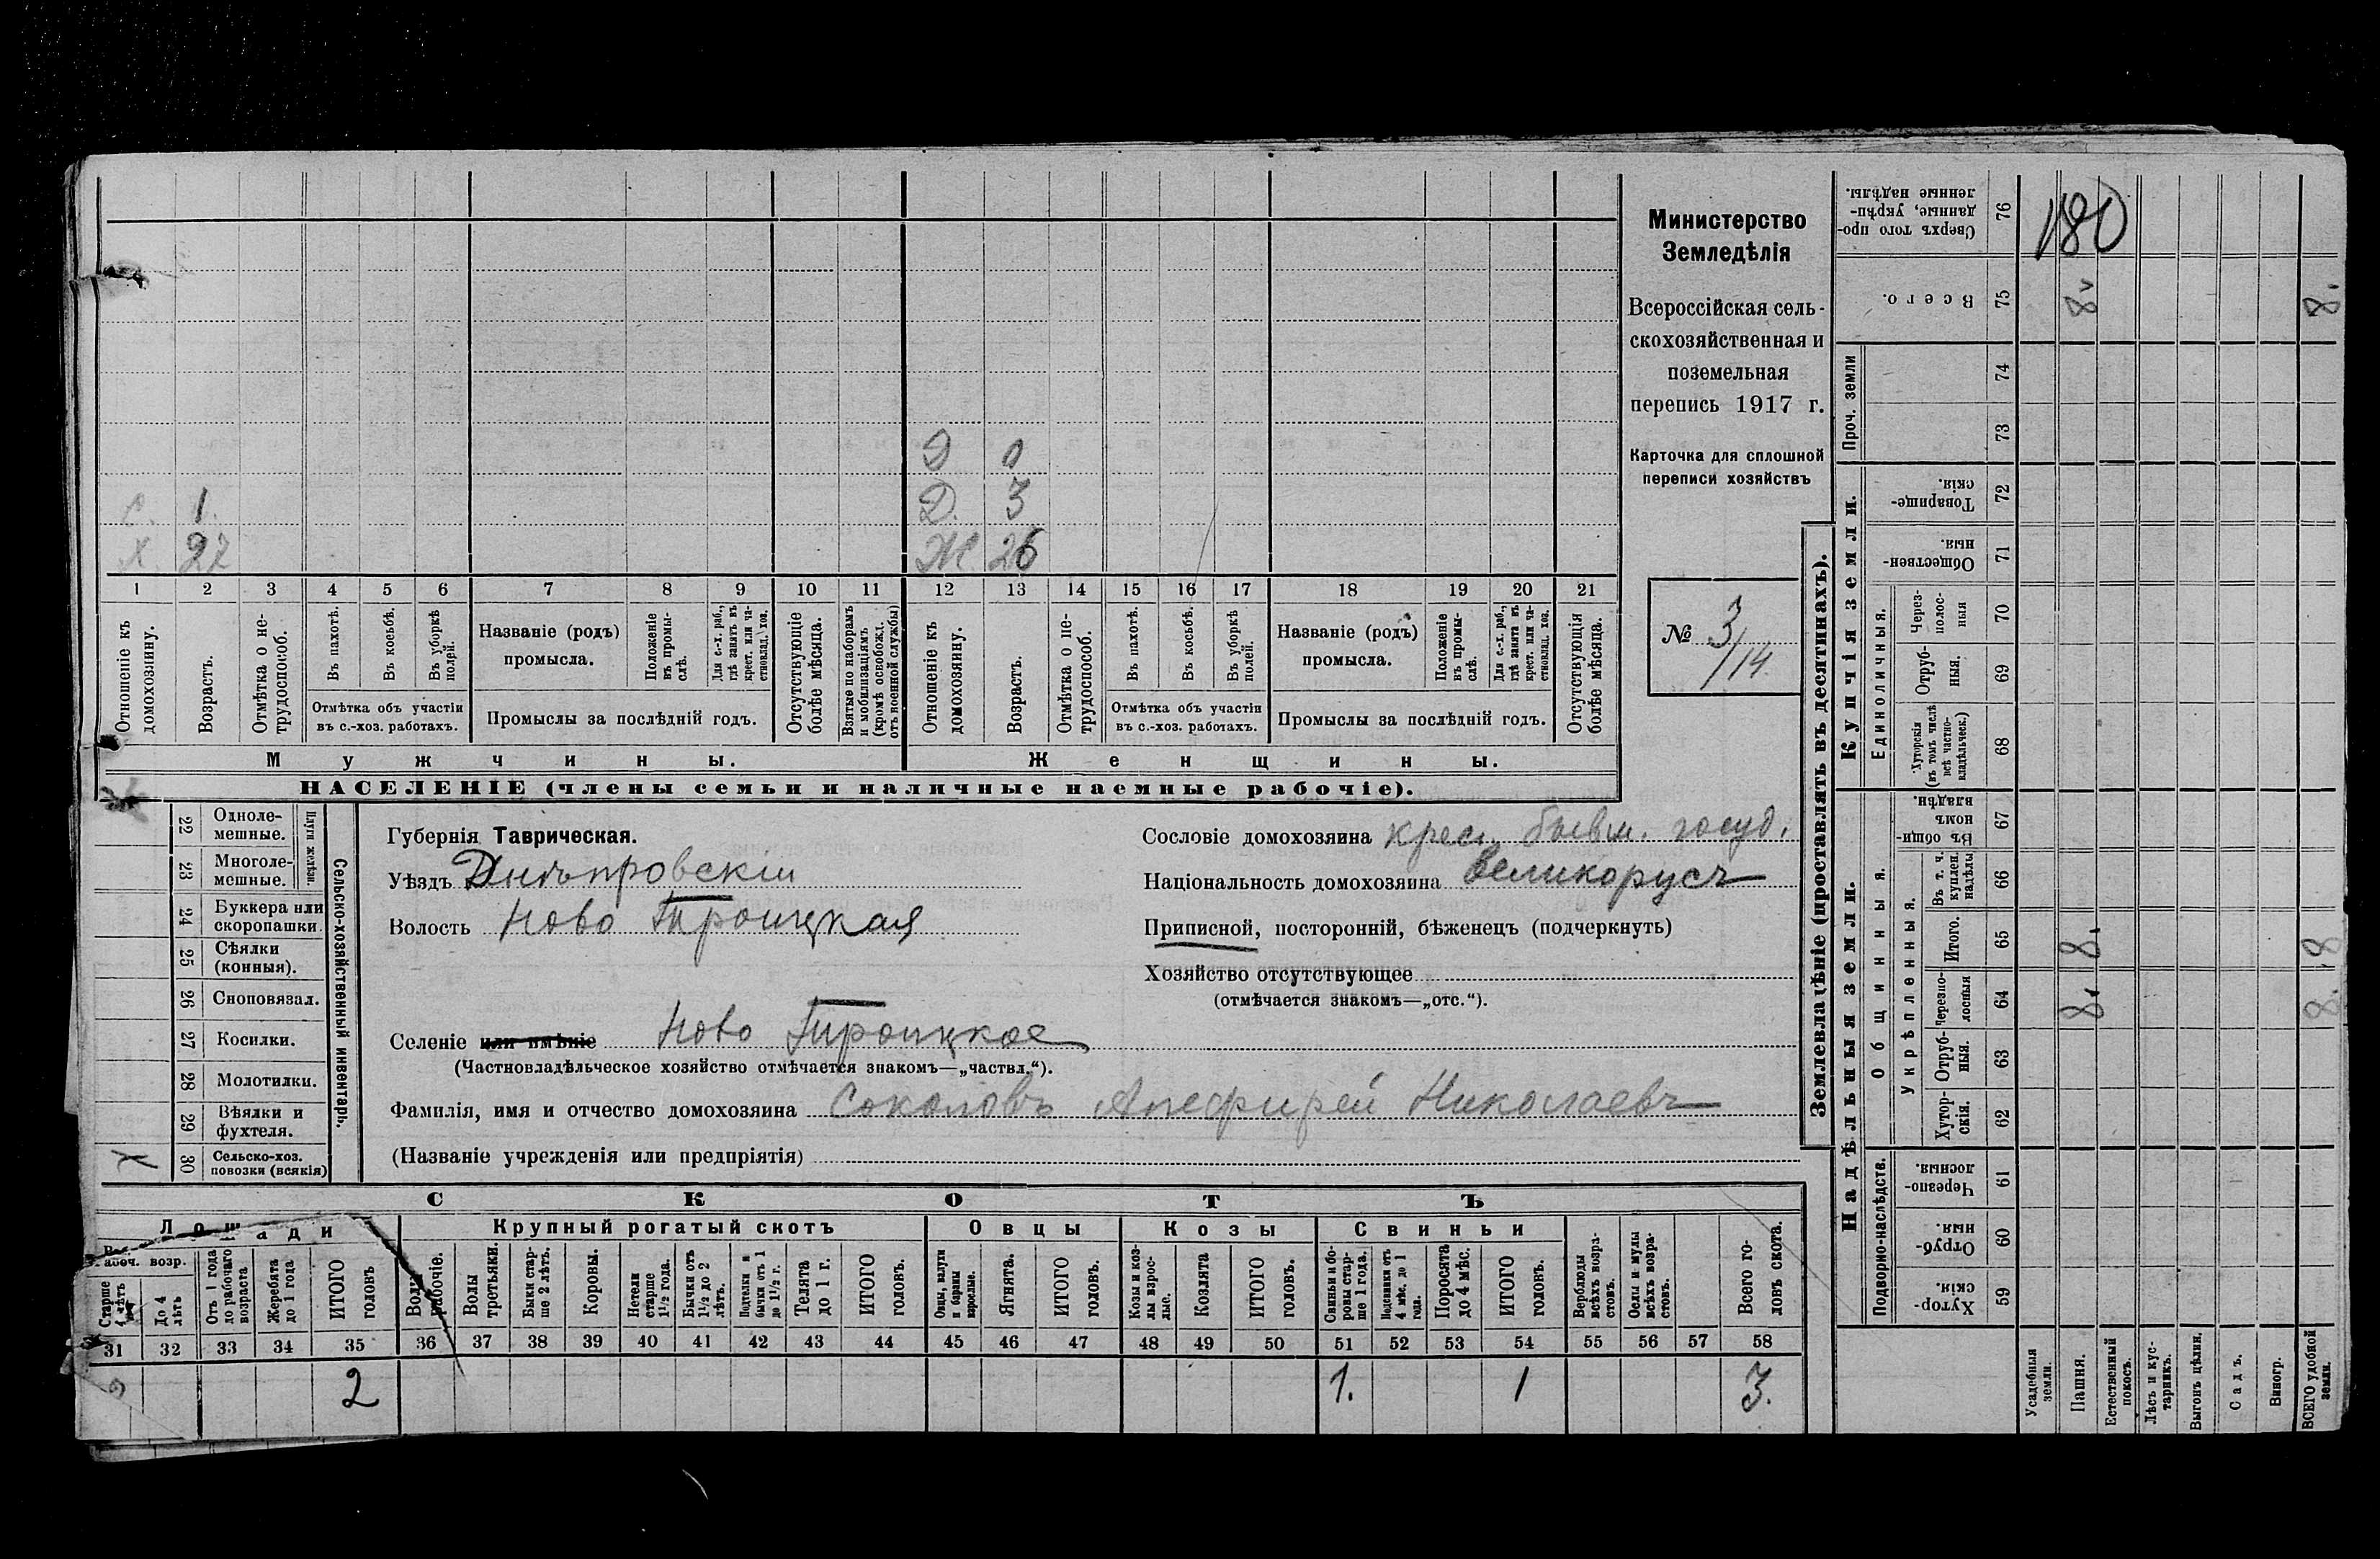 Министерство
Земледѣлія
Всероссійская сель-
скохозяйственная и
поземельная
перепись 1917 г.
Карточка для сплошной
переписи хозяйствъ
№ 3/14
Д 0
с. 1. Д. 3
х 27 Ж 26
1 2 3 4 5 6 7 8 9 10 11 12 13 14 15 16 17 18 19 20 21
Отношеніе къ домохозяину.
Возрастъ.
Отмѣтка о не-трудоспособ.
Въ пахотѣ.
Въ косьбѣ.
Въ уборкѣ полей.
Отмѣтка объ участіи
въ с.-хоз. работахъ.
Названіе (родъ)
промысла.
Положеніе въ промы-слѣ.
Для с.-х. раб., гдѣ занятъ въ крест. или ча-стновлад. хоз.
Промыслы за послѣдній годъ.
Отсутствующіе болѣе мѣсяца.
Взятые по наборамъ и мобилизаціямъ (кромѣ освобожд. отъ военной службы)
Отношеніе къ домохозяину.
Возрастъ.
Отмѣтка о не-трудоспособ.
Въ пахотѣ.
Въ косьбѣ.
Въ уборкѣ полей.
Отмѣтка объ участіи
въ с.-хоз. работахъ.
Названіе (родъ)
промысла.
Положеніе въ промы-слѣ.
Для с.-х. раб., гдѣ занята въ крест. или ча-стновлад. хоз.
Промыслы за послѣдній годъ.
Отсутствующія болѣе мѣсяца.
Мужчины. Женщины.
НАСЕЛЕНІЕ (члены семьи и наличные наемные рабочіе).
Сельско-хозяйственный инвентарь.
Плуги желѣзн.
22 Одноле-мешные.
23 Многоле-мешные.
24 Буккера или скоропашки.
25 Сѣялки (конныя).
26 Сноповязал.
27 Косилки.
28 Молотилки.
29 Вѣялки и фухтеля.
30 Сельско-хоз. повозки (всякія)
Губернія Таврическая.
Уѣздъ Днѣпровскій
Волость Ново Троицкая
Селеніе или имѣніе Ново Троицкое
(Частновладѣльческое хозяйство отмѣчается знакомъ—„частвл.“).
Сословіе домохозяина крес. бывш. госуд.
Національность домохозяина великорусъ
Приписной, посторонній, бѣженецъ (подчеркнуть)
Хозяйство отсутствующее
(отмѣчается знакомъ—„отс.“).
Фамилія, имя и отчество домохозяина Соколовъ Николаевъ
(Названіе учрежденія или предпріятія)
СКОТЪ
Лошади Крупный рогатый скотъ Овцы Козы Свиньи
Рабоч. возр.
Старше 4 лѣтъ
До 4 лѣтъ
Отъ 1 года до рабочаго возраста
Жеребята до 1 года
ИТОГО головъ
Волы рабочіе.
Волы третьяки.
Быки стар-ше 2 лѣтъ.
Коровы.
Нетели старше 1½ года.
Бычки отъ 1½ до 2 лѣтъ.
Подтелки и бычки отъ 1 до 1½ г.
Телята до 1 г.
ИТОГО головъ.
Овцы, валухи и бараны взрослые.
Ягнята.
ИТОГО головъ.
Козы и коз-лы взрос-лые.
Козлята
ИТОГО головъ.
Свиньи и бо-ровы стар-ше 1 года.
Подсвинки отъ 4 мѣс. до 1 года.
Поросята до 4 мѣс.
ИТОГО головъ.
Верблюды всѣхъ возра-стовъ.
Ослы и мулы всѣхъ возра-стовъ.
Всего го-ловъ скота.
31 32 33 34 35 36 37 38 39 40 41 42 43 44 45 46 47 48 49 50 51 52 53 54 55 56 57 58
2 2 1. 1 3.
Землевладѣніе (проставлять въ десятинахъ).
Надѣльныя земли.
Купчія земли.
Проч. земли
Подворно-наслѣдств.
Общинныя.
Укрѣпленныя.
Единоличныя.
Сверхъ того про-данные, укрѣп-ленные надѣлы. 76 180
Всего. 75 8 8.
74
73
Товарище-скія. 72
Обществен-ныя. 71
Через-полос-ныя 70
Отруб-ныя. 69
Хуторскія (въ томъ числѣ всѣ частно-владѣльческ.) 68
Въ общи-номъ владѣн. 67
Въ т. ч. куплен. надѣлы 66
Итого. 65 8. 8
Черезпо-лосныя 64 8. 8.
Отруб-ныя. 63
Хутор-скія. 62
Черезпо-лосныя. 61
Отруб-ныя. 60
Хутор-скія. 59
Усадебныя земли.
Пашня.
Естественный покосъ.
Лѣсъ и кус-тарникъ.
Выгонъ цѣлин.
Садъ.
Виногр.
ВСЕГО удобной земли.